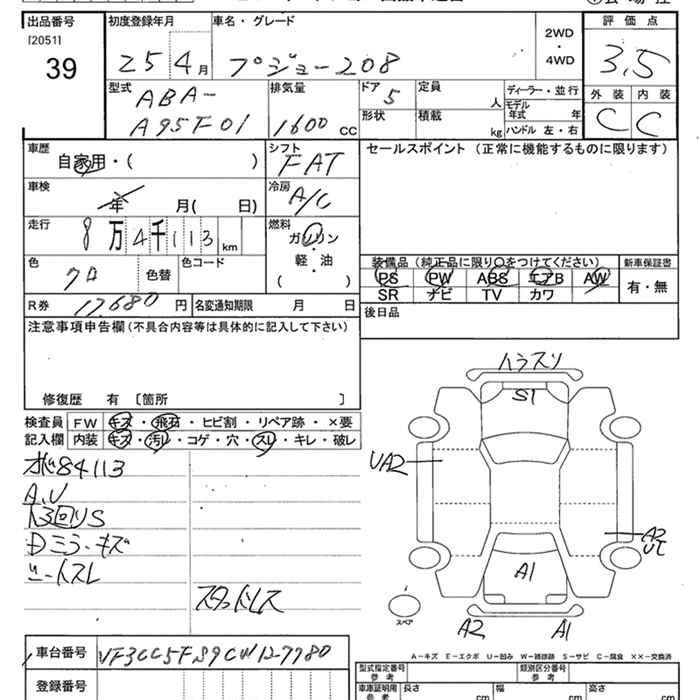 出品番号 初度登録年月 車名・グレード 2WD・4WD 評価点
[2051]
39 25 4月 プジョー208 3.5
型式 排気量 ドア 定員 ディーラー・並行 外装 内装
ABA- 5 人 モデル年式 年 C C
A95F01 1600CC 形状 積載 kg ハンドル 左・右
車歴 シフト セールスポイント (正常に機能するものに限ります)
自家用・( ) FAT
車検 冷房
年 月( 日) A/C
走行 燃料
8万4千113km ガソリン
軽・油
( )
色 色替 色コード
クロ
装備品(純正品に限り○をつけてください) 新車保証書
PS PW ABS エアB AW 有・無
SR ナビ TV カワ
R券 17,680円 名変通知期限 月 日
後日品
注意事項申告欄(不具合内容等は具体的に記入して下さい)
修復歴 有 [箇所 ]
検査員 FW キズ・飛石・ヒビ割・リペア跡・×要
記入欄 内装 キズ・汚レ・コゲ・穴・スレ・キレ・破レ
84113
A.U
S
Dミラーキズ
シートスレ
スタットレス
ハラスリ
S1
UA2
A2
UC
A1
スペア
A2 A1
A−キズ E−エクボ U−凹み W−補修跡 S−サビ C−腐食 ××−交換済
車台番号 VF3CC5F
登録番号
型式指定番号 参考 類別区分番号 参考
車庫証明用 参考 長さ cm 幅 cm 高さ cm